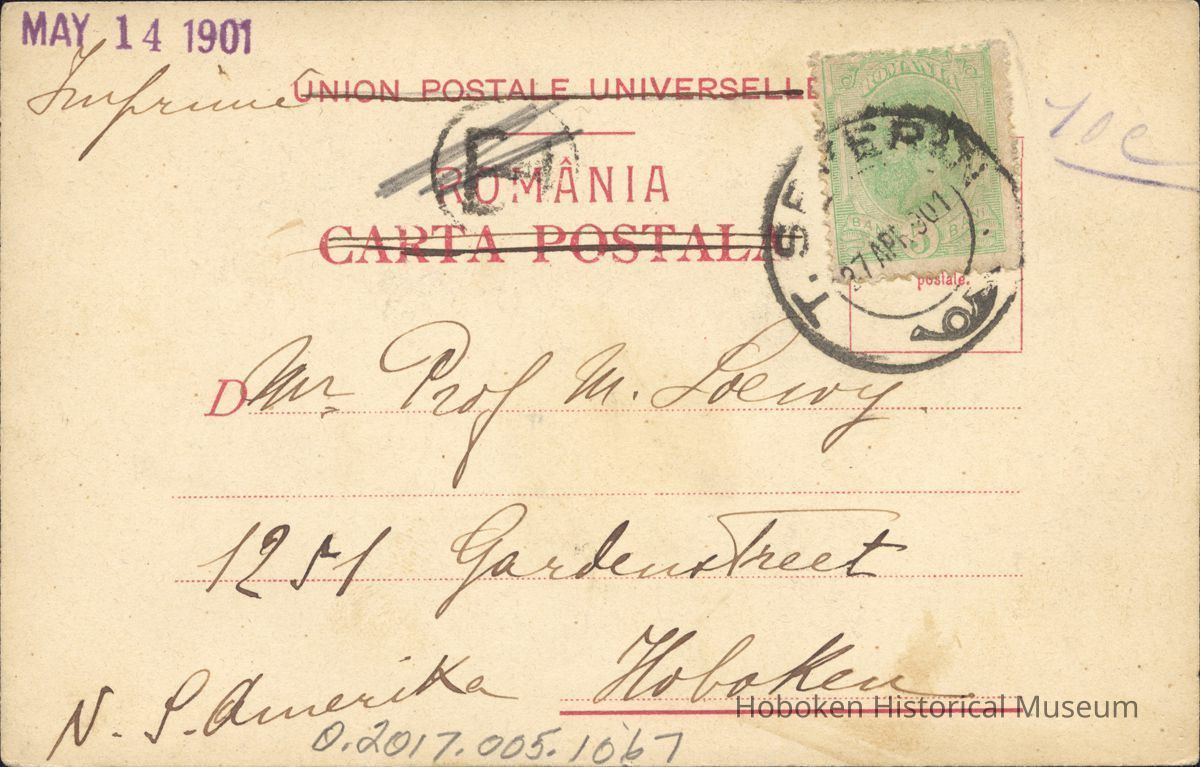 MAY 14 1901
Imprimé
UNION POSTALE UNIVERSELLE
10c
ROMÂNIA
ROMÂNIA
CARTA POSTALA
T. SEVERIN
27 APR. 901
5
BANI
postale.
D Mr. Prof M. Loewy.
1251 Gardenstreet
Hoboken
N. S. Amerika
Hoboken Historical Museum
0.2017.005.1067